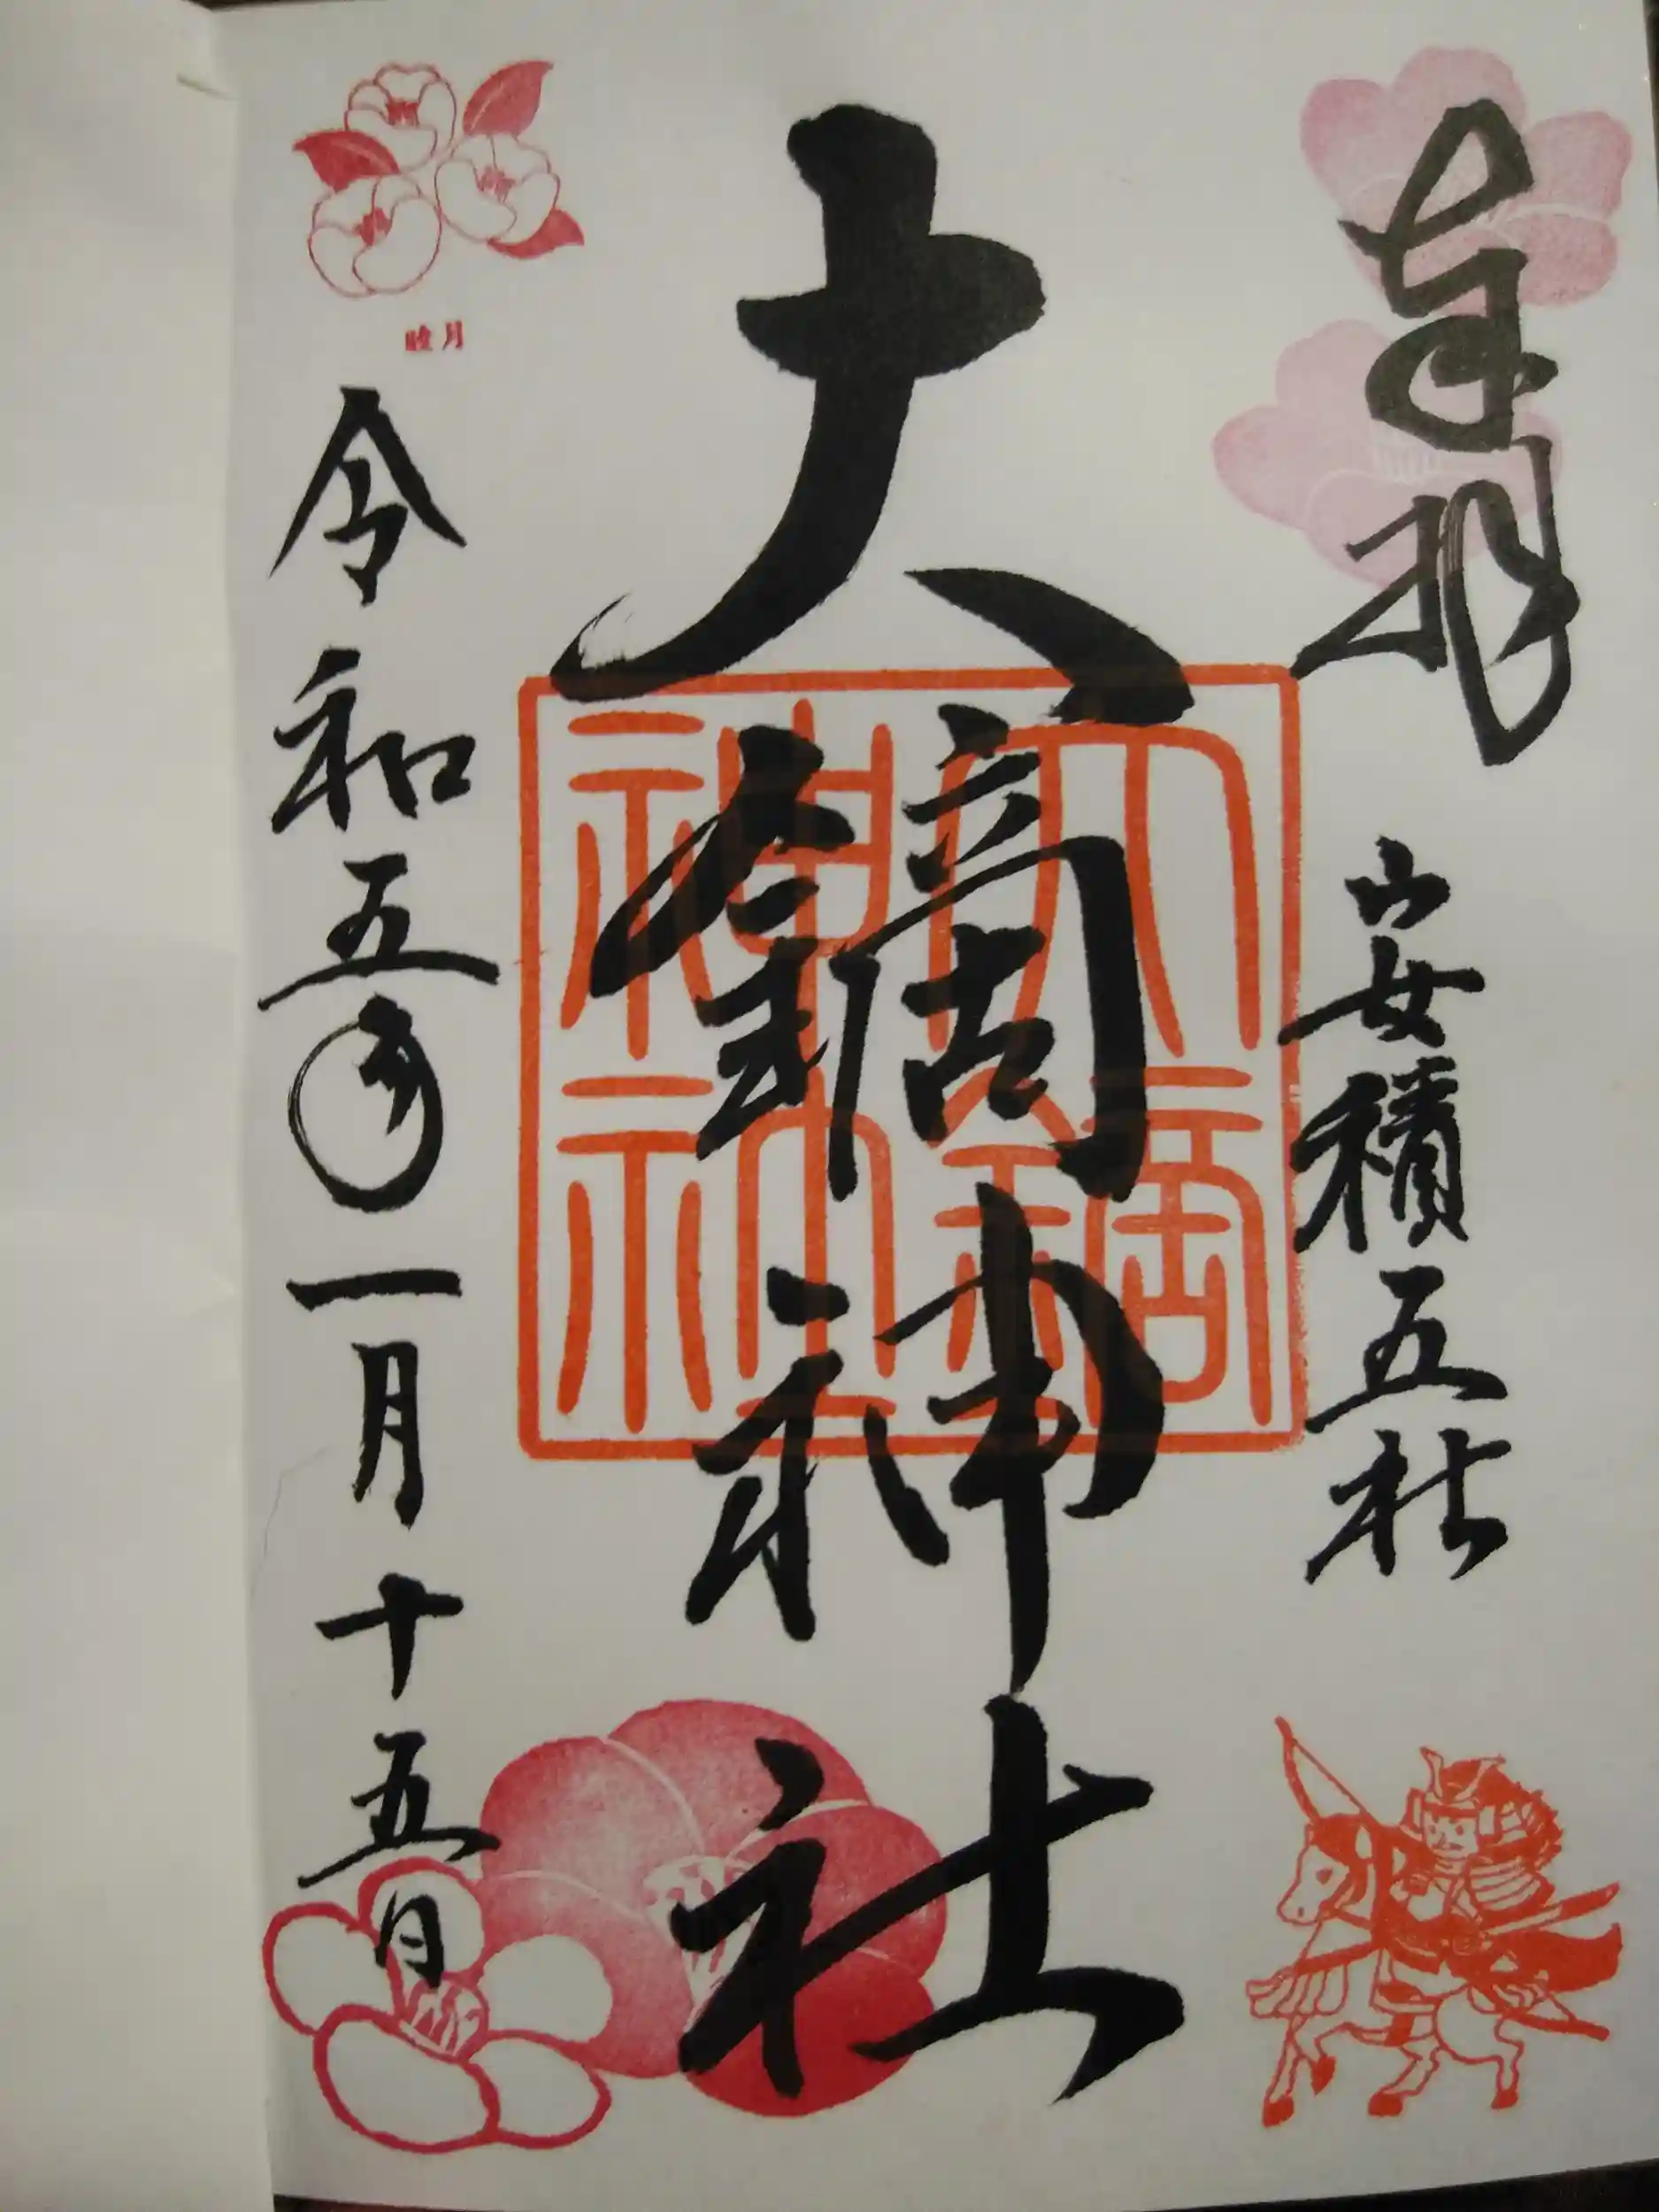 奉拝
安積五社
大鏑神社
大鏑神社
睦月
令和五年一月十五日